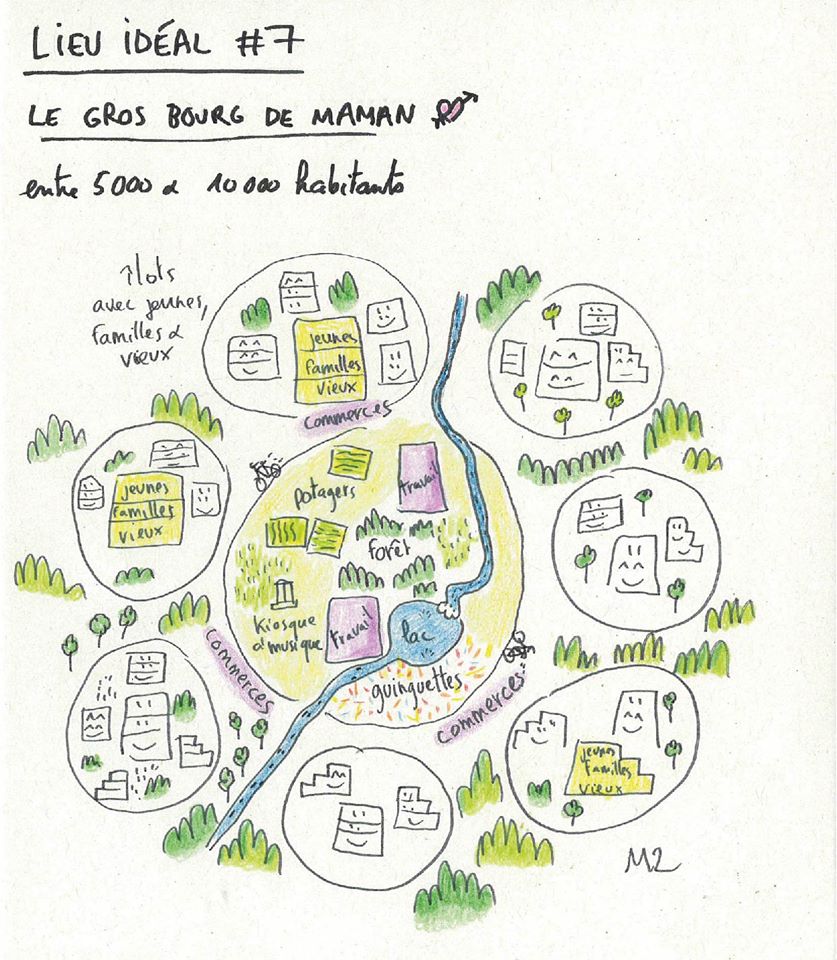 LIEU IDÉAL #7
LE GROS BOURG DE MAMAN
entre 5000 & 10 000 habitants
îlots
avec jeunes,
familles &
vieux
jeunes
familles
vieux
commerces
jeunes
familles
vieux
potagers
travail
forêt
Kiosque
à musique
travail
lac
guinguettes
commerces
commerces
jeunes
familles
vieux
M2